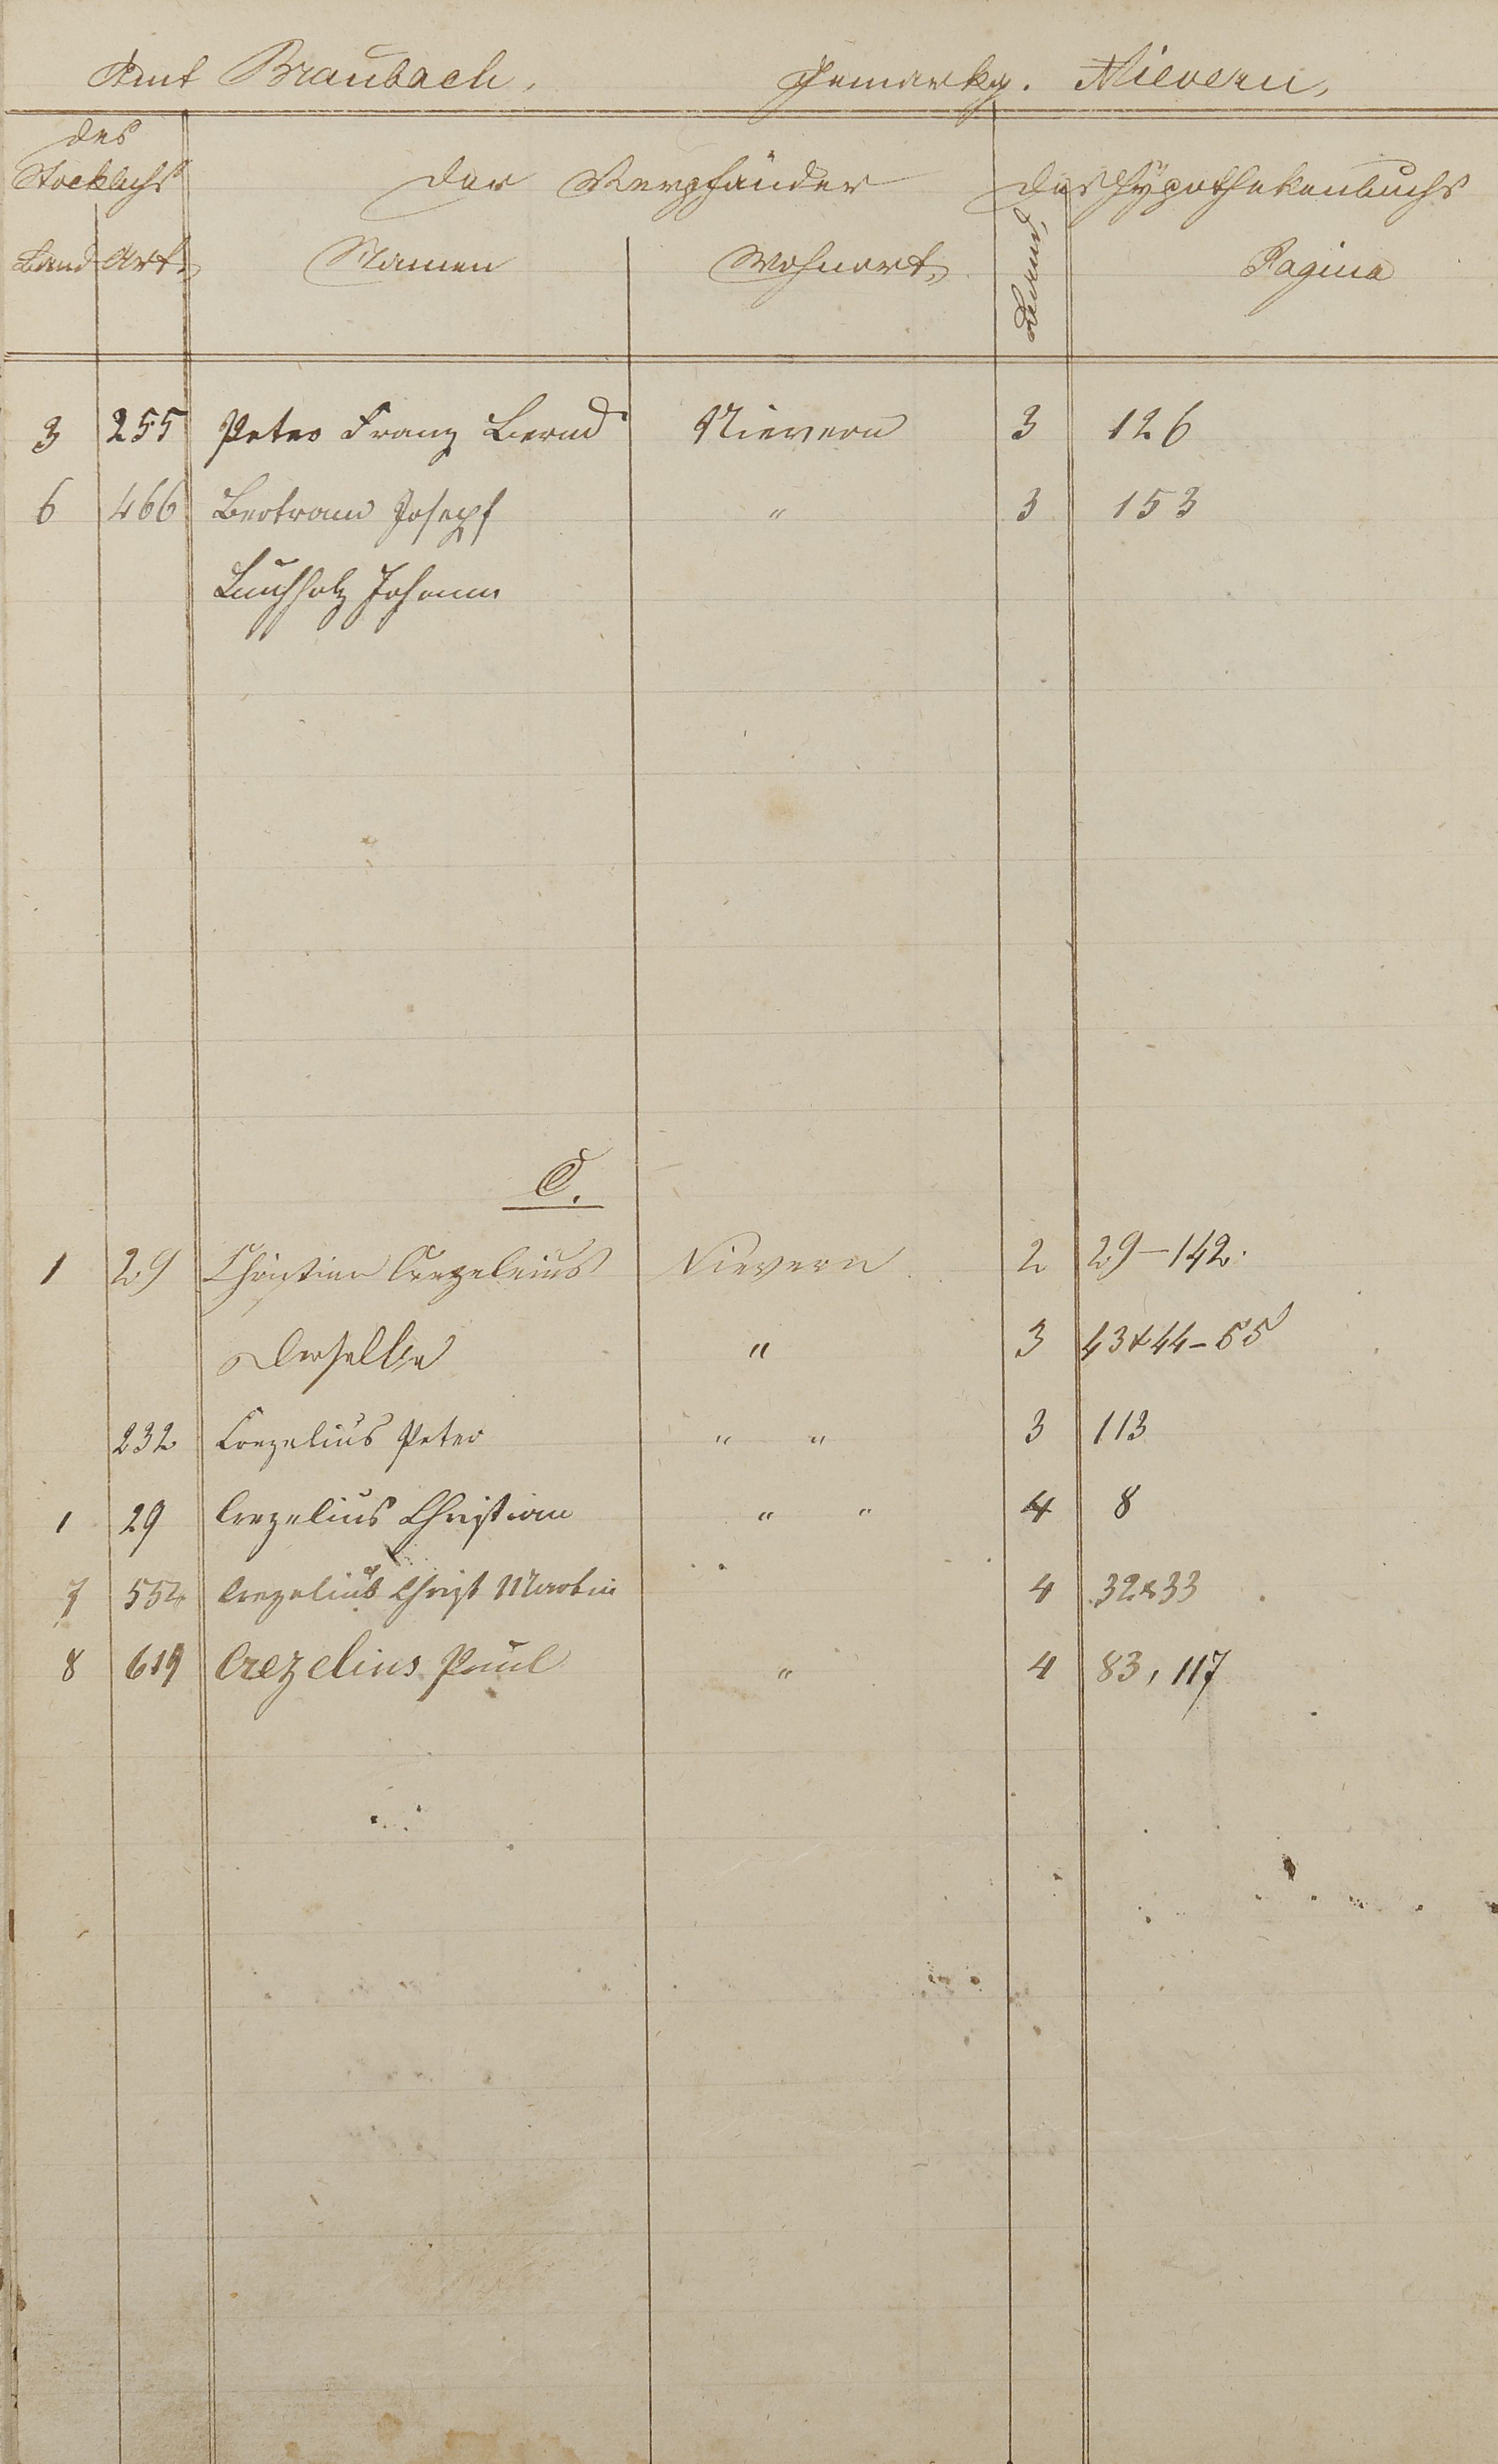 Amt Braubach. Gemarkg. Nievern,
des
Stockbchs der Verpfänder des Hypothekenbuchs
Band Art. Namen Wohnort. Bandnr. Pagina
3 255 Peter Franz Bernd Nievern 3 126
6 466 Bertram Joseph " 3 153
Buchholz Johann
C.
1 29 Christian Crezelius Nievern 2 29-142.
Derselbe " 3 43&44-55
232 Crezelius Peter " " 3 113
1 29 Crezelius Christian " " 4 8
7 552 Crezelius Christ Martin 4 32&33
8 619 Crezelius Paul " 4 83, 117